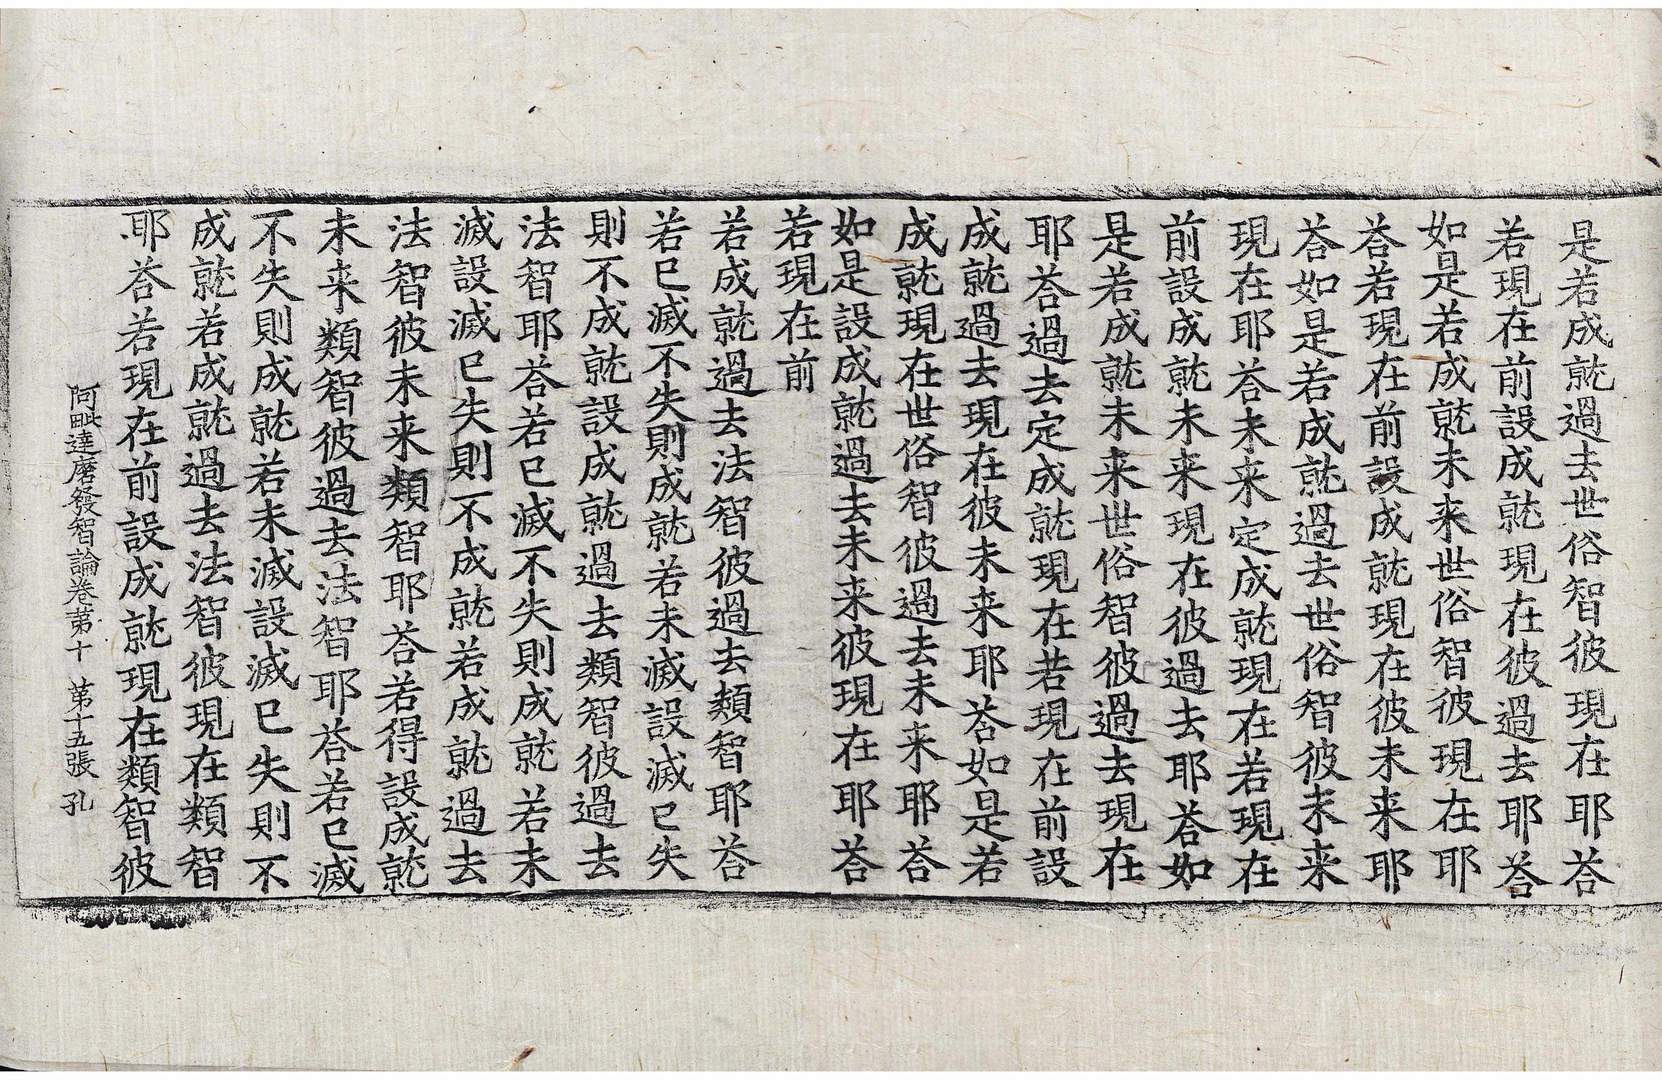 是若成就過去世俗智彼現在耶荅
若現在前設成就現在彼過去耶荅
如是若成就未来世俗智彼現在耶
荅若現在前設成就現在彼未来耶
荅如是若成就過去世俗智彼未来
現在耶荅未来定成就現在若現在
前設成就未来現在彼過去耶荅如
是若成就未来世俗智彼過去現在
耶荅過去定成就現在若現在前設
成就過去現在彼未来耶荅如是若
成就現在世俗智彼過去未来耶荅
如是設成就過去未来彼現在耶荅
若現在前
若成就過去法智彼過去類智耶荅
若已滅不失則成就若未滅設滅已失
則不成就設成就過去類智彼過去
法智耶荅若已滅不失則成就若未
滅設滅已失則不成就若成就過去
法智彼未来類智耶荅若得設成就
未来類智彼過去法智耶荅若已滅
不失則成就若未滅設滅已失則不
成就若成就過去法智彼現在類智
耶荅若現在前設成就現在類智彼
阿毗達磨發智論卷第十 第十五張 孔